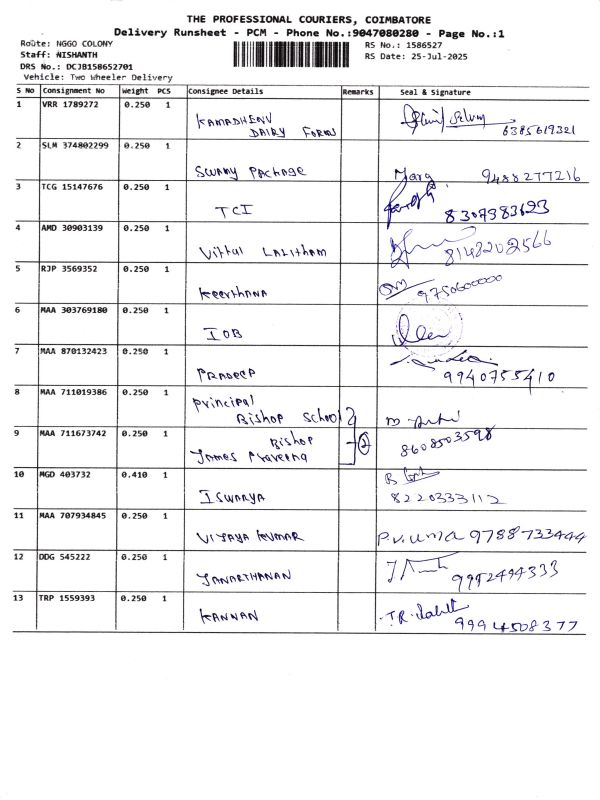 THE PROFESSIONAL COURIERS, COIMBATORE
Delivery Runsheet - PCM - Phone No.:9047080280 - Page No.:1
Route: NGGO COLONY
RS No.: 1586527
Staff: NISHANTH
RS Date: 25-Jul-2025
DRS No.: DCJB158652701
Vehicle: Two Wheeler Delivery
S No Consignment No Weight PCS Consignee Details Remarks Seal & Signature
1 VRR 1789272 0.250 1
KAMADHENV
DAIRY FORMS
6385619321
2 SLM 374802299 0.250 1
SWAMY PACKAGE 9488277216
3 TCG 15147676 0.250 1
TCI 8307983623
4 AMD 30903139 0.250 1
Vittal LALITHAM 8148202566
5 RJP 3569352 0.250 1
Keerthana 9750600000
6 MAA 303769180 0.250 1
IOB
7 MAA 870132423 0.250 1
PRADEEP 9940755410
8 MAA 711019386 0.250 1
Principal
Bishop School
9 MAA 711673742 0.250 1
Bishop 2
James Praveena 8608503598
10 MGD 403732 0.410 1
ISWARYA 8220333112
11 MAA 707934845 0.250 1
VIJAYA KUMAR P.V.UMA 9788733444
12 DDG 545222 0.250 1
JANARTHANAN 9952494333
13 TRP 1559393 0.250 1
KANNAN 9994508377